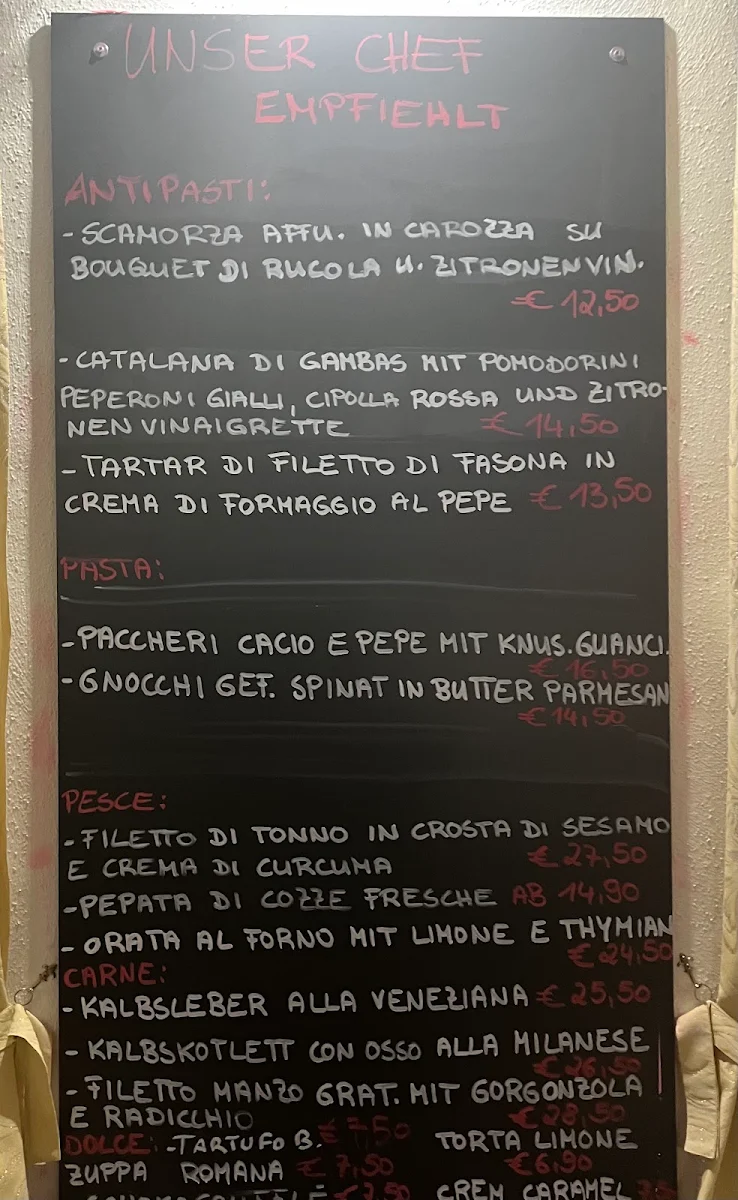 UNSER CHEF
EMPFIEHLT
ANTIPASTI:
- SCAMORZA AFFU. IN CAROZZA SU
BOUQUET DI RUCOLA U. ZITRONENVIN.
€ 12,50
- CATALANA DI GAMBAS MIT POMODORINI
PEPERONI GIALLI, CIPOLLA ROSSA UND ZITRO-
NENVINAIGRETTE € 14,50
- TARTAR DI FILETTO DI FASONA IN
CREMA DI FORMAGGIO AL PEPE € 13,50
PASTA:
- PACCHERI CACIO E PEPE MIT KNUS. GUANCI.
€ 16,50
- GNOCCHI GEF. SPINAT IN BUTTER PARMESAN
€ 14,50
PESCE:
- FILETTO DI TONNO IN CROSTA DI SESAMO
E CREMA DI CURCUMA € 27,50
- PEPATA DI COZZE FRESCHE AB 14,90
- ORATA AL FORNO MIT LIMONE E THYMIAN
€ 24,50
CARNE:
- KALBSLEBER ALLA VENEZIANA € 25,50
- KALBSKOTLETT CON OSSO ALLA MILANESE
€ 26,50
- FILETTO MANZO GRAT. MIT GORGONZOLA
E RADICCHIO € 28,50
DOLCE: - TARTUFO B. € 7,50 TORTA LIMONE
ZUPPA ROMANA € 7,50 € 6,90
€ 7,50 CREM CARAMEL